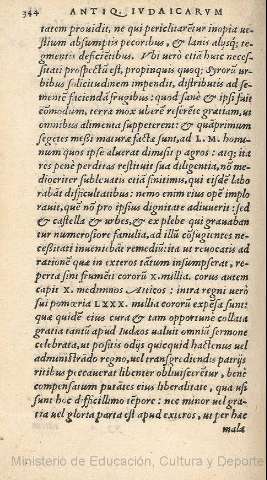 344 ANTIQ. IVDAICARVM
tatem prouidit, ne qui periclitarẽtur inopia ue-
stium absumptis pecoribus, & lanis alijsq; te-
gmentis deficiẽtibus. Vbi uerò etiã huic neces-
sitati prospectũ est, propinquis quoq; Syrorũ ur-
bibus solicitudinem impendit, distributis ad se-
mentẽ faciendã frugibus: quod sanè & ipsi fuit
cõmodum, terra mox uberẽ referẽte gratiam, ut
omnibus alimenta suppeterent: & quãprimum
segetes messi maturæ factæ sunt, ad L. M. homi-
num quos ipse aluerat dimisit p agros: atq; ita
res penè perditas restituit sua diligentia, nõ me-
diocriter subleuatis etiã finitimis, qui eisdẽ labo
rabãt difficultatibus: nemo enim eius opẽ implo
rauit, quẽ nõ pro ipsius dignitate adiuuerit: sed
& castella & urbes, & ex plebe qui grauaban
tur numerosiore familia, ad illũ cõfugientes ne-
cessitati inueniebãt remediũ: ita ut reuocatis ad
rationẽ quæ in exteros tãtum insumpserat, re-
perta sint frumẽti cororũ X. millia. corus autem
capit X. medimnos Atticos: intra regni uerò
sui pomœria LXXX. millia cororũ expẽsa sunt:
quæ quidẽ eius cura & tam opportunè collata
gratia tantũ apud Iudæos ualuit omniũ sermone
celebrata, ut positis odijs quicquid hactenus uel
administrãdo regno, uel transgrediendis patrijs
ritibus peccauerat libenter obliuiscerẽtur, benè
compensatum putãtes eius liberalitate, qua usi
sunt hoc difficillimo tẽpore: nec minor uel gra-
tia uel gloria parta est apud exteros, ut per hæc
mala
Ministerio de Educación, Cultura y Deporte